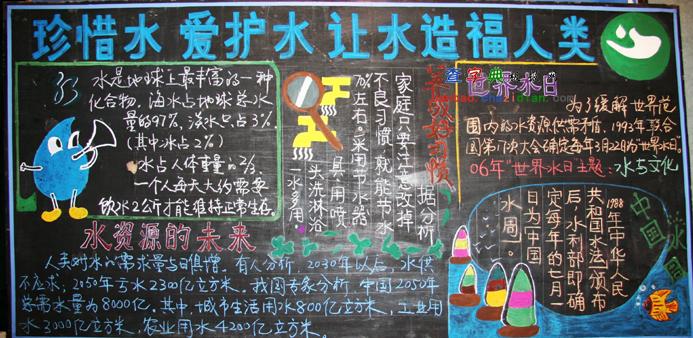 珍惜水 爱护水 让水造福人类
水是地球上最丰富的一种
化合物，海水占地球总水
量的97%，淡水只占3%
（其中冰占2%）
水占人体重量的2/3，
一个人每天大约需要
饮水2公斤才能维持正常生存。
好习惯
据分析
家庭只要注意改掉
不良习惯，就能节水
70%左右。采用节水器
具，用喷
头洗淋浴
一水多用。
查字典
世界水日
为了缓解世界范
围内的水资源供需矛盾，1993年联合
国第47次大会确定每年3月22日为"世界水日"。
06年"世界水日"主题：水与文化
中国水周
1988年《中华人民
共和国水法》颁布
后，水利部即确
定每年的七月一
日为"中国
水周"。
水资源的未来
人类对水的需求量与日俱增。有人分析，2030年以后，水供
不应求，2050年亏水2300亿立方米。我国专家分析，中国2050年
总需水量为8000亿。其中，城市生活用水800亿立方米，工业用
水3000亿立方米，农业用水4200亿立方米。